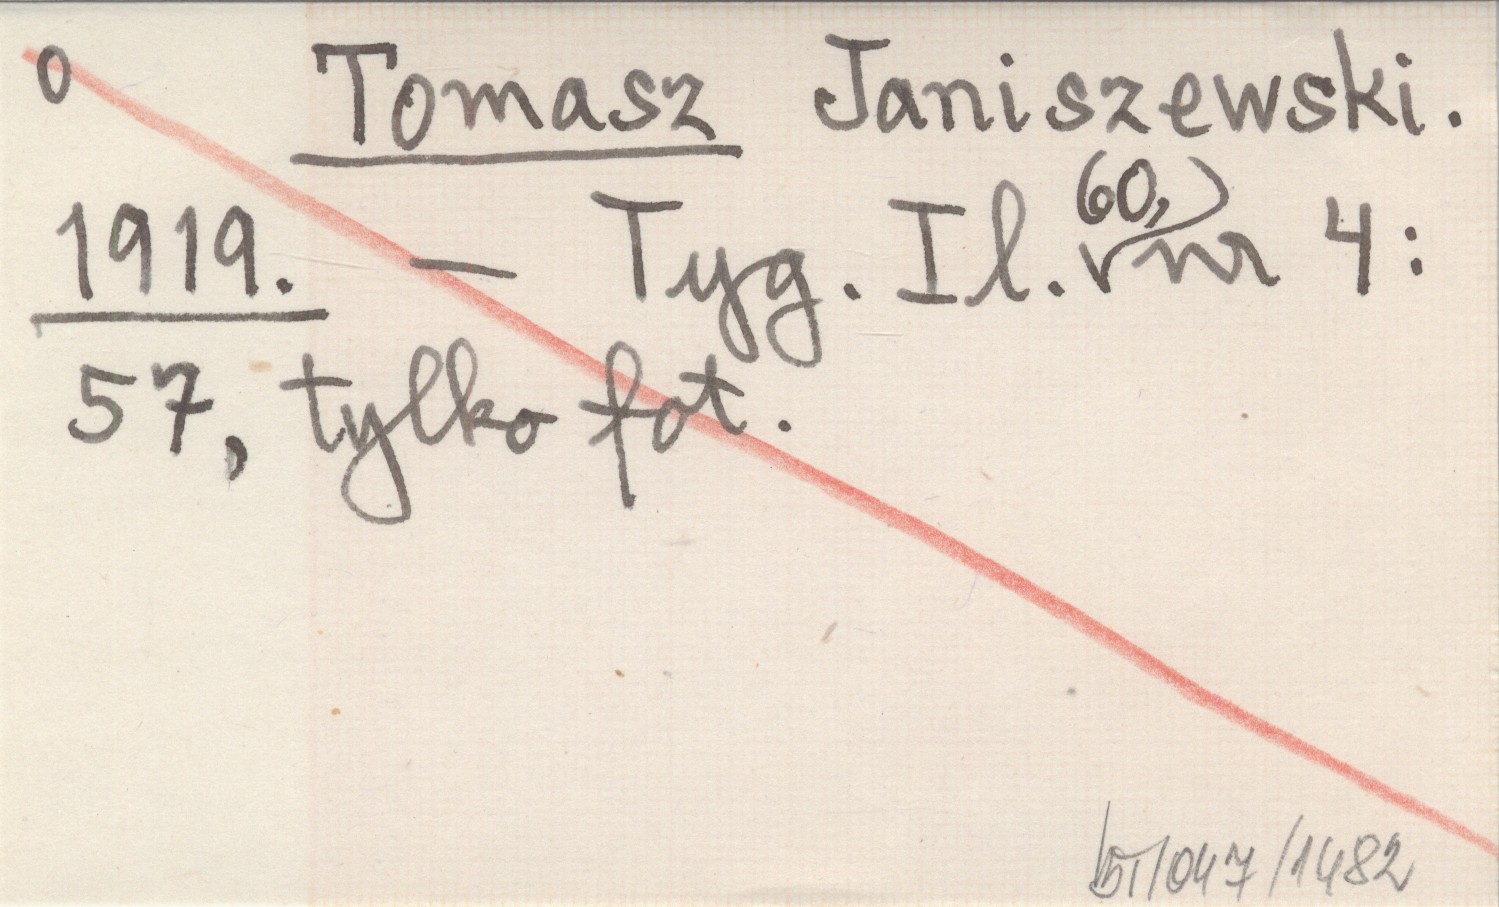 0 Tomasz Janiszewski.
1919. — Tyg. Il. 60, nr 4:
57, tylko fot.
/047/1482